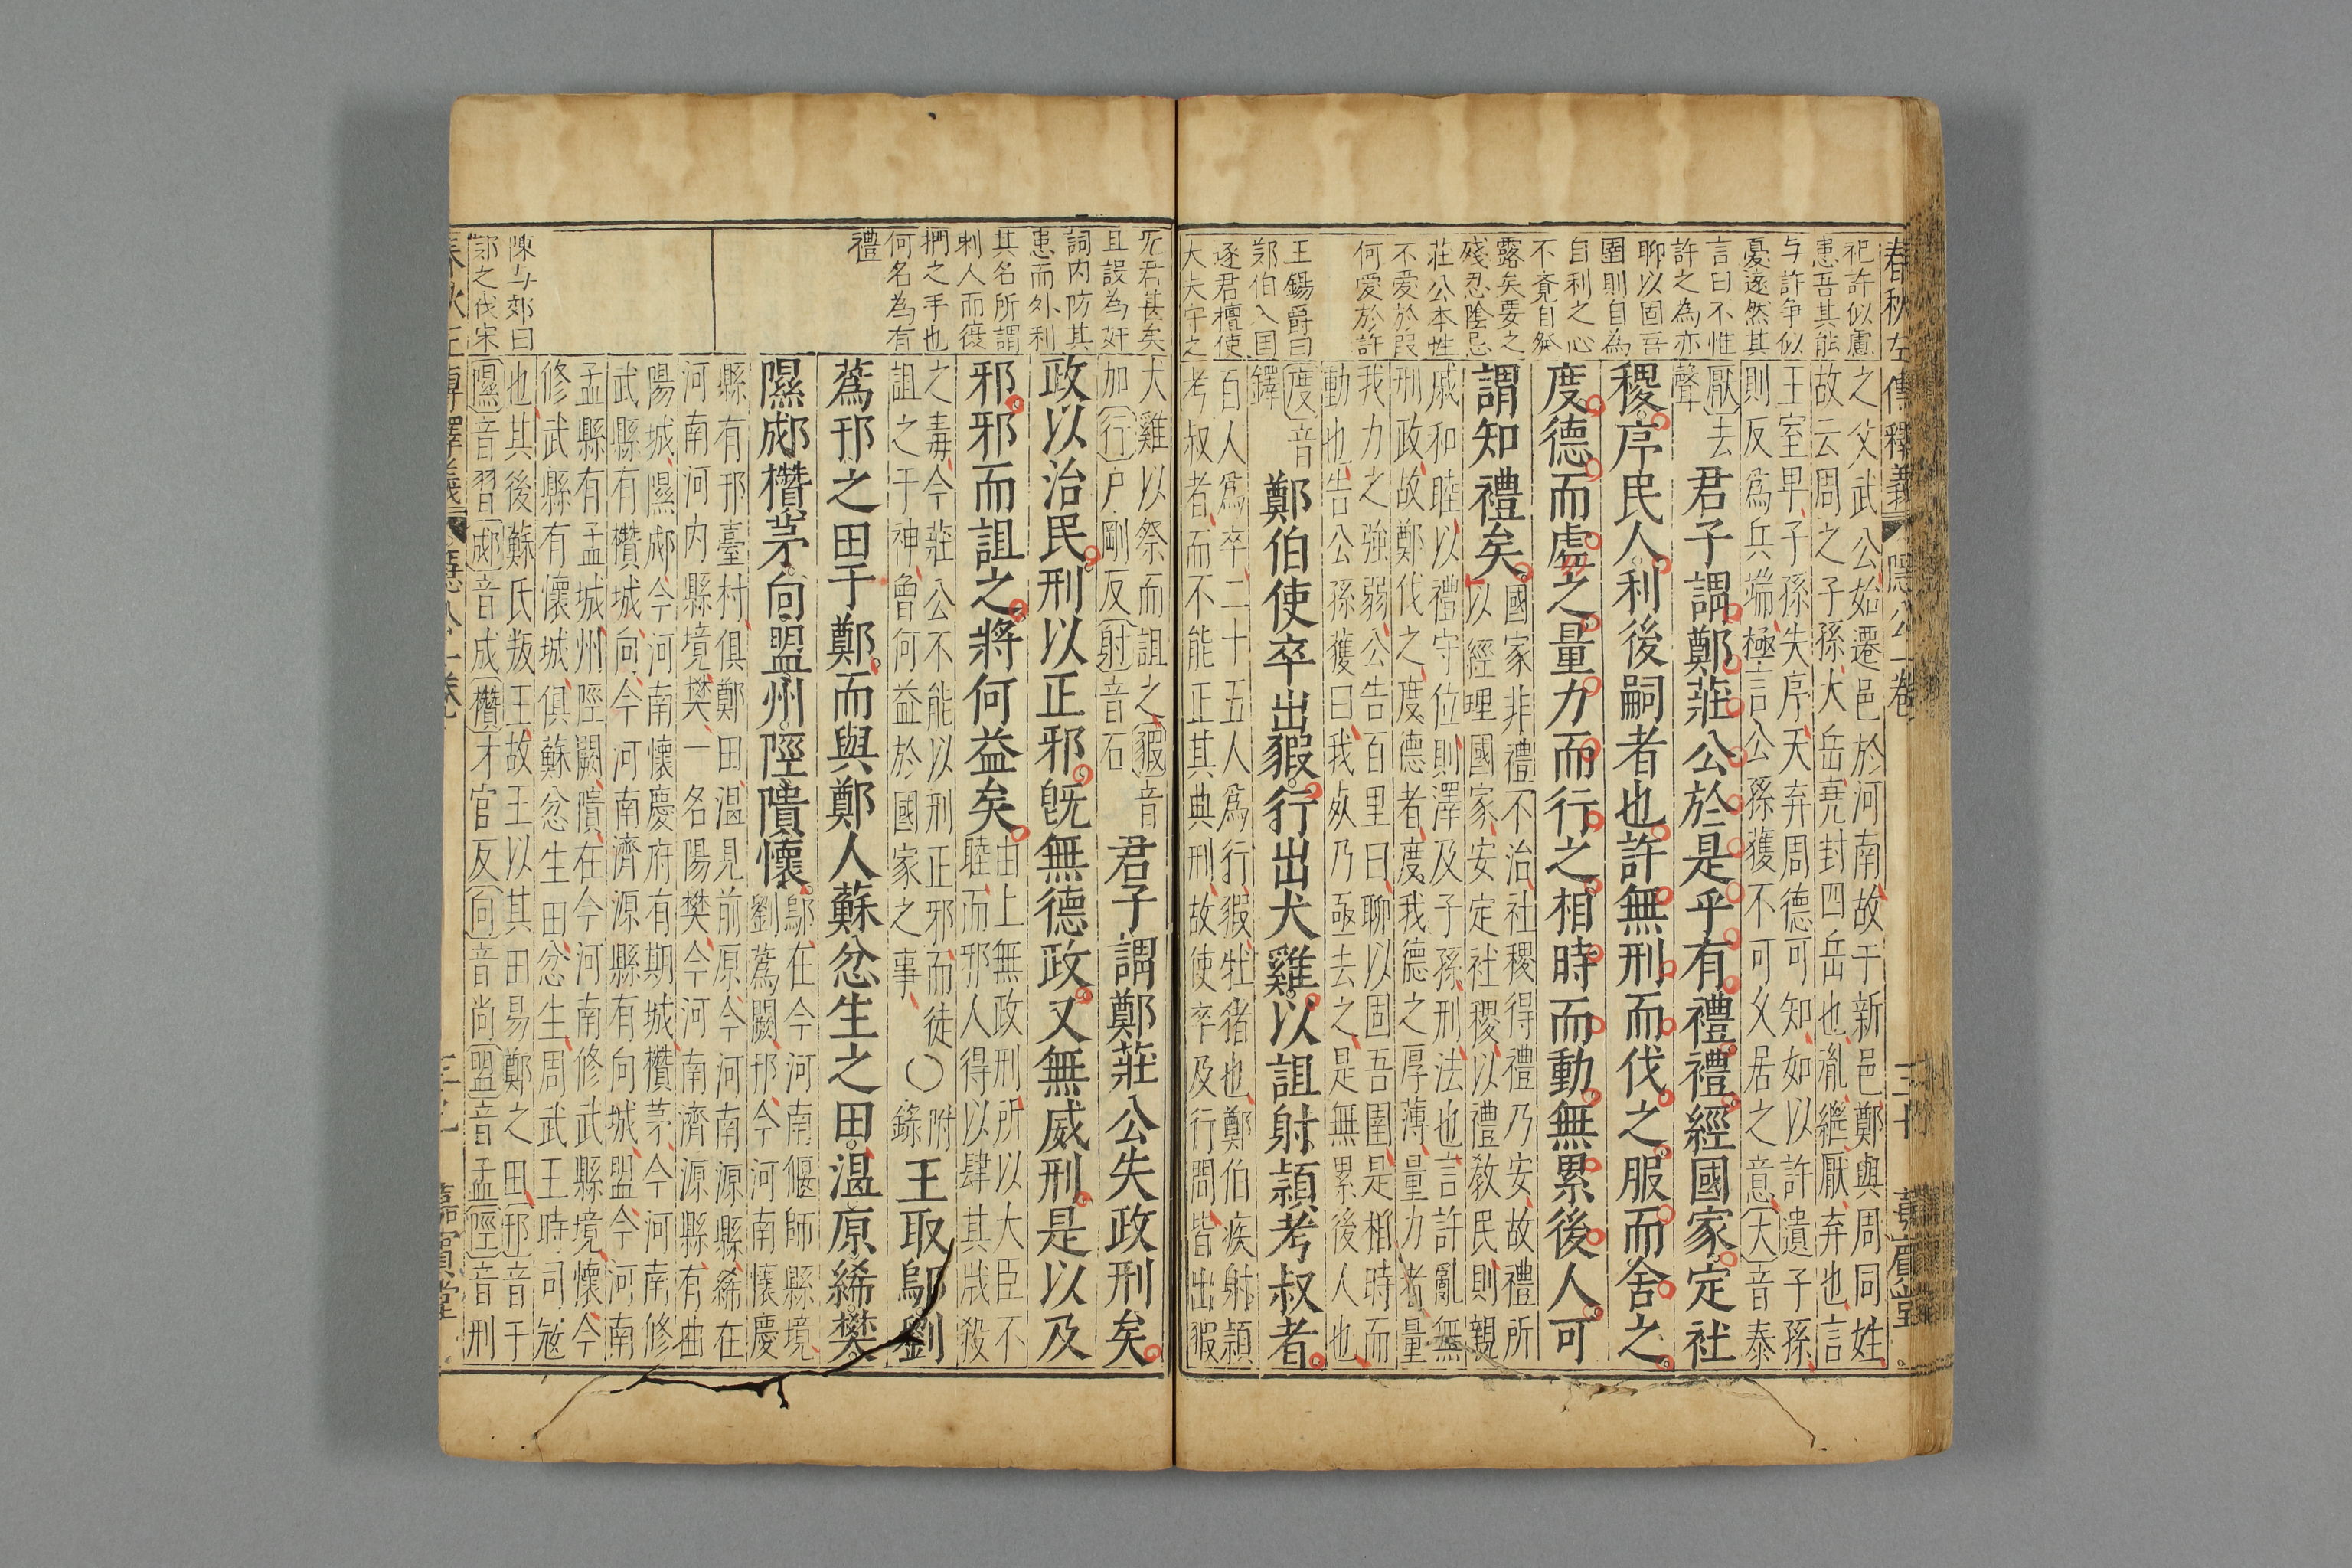 春秋左傳釋義
隱公一卷
三十
祀許似慮
患吾其能
与許爭似
憂遂然其
言曰不惟
許之為亦
聊以固吾
圉則自為
自利之心
不覺自然
露矣要之
殘忍陰忌
莊公本性
不愛於段
何愛於許
王錫爵曰
郑伯入国
逐君檀使
大夫守之
之父武公始遷邑於河南故于新邑鄭與周同姓
故云周之子孫大岳堯封四岳也胤繼厭弃也言
王室卑子孫失序天弃周德可知如以許遺子孫
則反爲兵端極言公孫獲不可久居之意大音泰
厭去
聲
君子謂鄭莊公於是乎有禮禮經國家定社
稷序民人利後嗣者也許無刑而伐之服而舍之
度德而處之量力而行之相時而動無累後人可
謂知禮矣
國家非禮不治社稷得禮乃安故禮所
以經理國家安定社稷以禮教民則親
戚和睦以禮守位則澤及子孫刑法也言許亂無
刑政故鄭伐之度德者度我德之厚薄量力者量
我力之強弱公告百里曰聊以固吾圉是相時而
動也告公孫獲曰我死乃亟去之是無累後人也
度音
鐸
鄭伯使卒出豭行出犬雞以詛射潁考叔者
百人爲卒二十五人爲行豭牡猪也鄭伯疾射潁
考叔者而不能正其典刑故使卒及行間皆出豭
无君甚矣
且設為奸
詞内防其
患而外利
其名所謂
刺人而復
捫之手也
何名為有
禮
陳与郊曰
郭之伐宋
犬雞以祭而詛之豭音
加行戶剛反射音石
君子謂鄭莊公失政刑矣
政以治民刑以正邪既無德政又無威刑是以及
邪邪而詛之將何益矣
由上無政刑所以大臣不
睦而邪人得以肆其戕殺
之毒今莊公不能以刑正邪而徒
詛之于神曾何益於國家之事
○
附
錄
王取鄔劉
蔿邘之田于鄭而與鄭人蘇忿生之田溫原絺樊
隰郕欑茅向盟州陘隤懷
鄔在今河南偃師縣境
劉蔿闕邘今河南懷慶
縣有邘臺村俱鄭田溫見前原今河南源縣絺在
河南河内縣境樊一名陽樊今河南濟源縣有曲
陽城隰郕今河南懷慶府有期城欑茅今河南修
武縣有欑城向今河南濟源縣有向城盟今河南
孟縣有孟城州陘闕隤在今河南修武縣境懷今
修武縣有懷城俱蘇忿生田忿生周武王時司寇
也其後蘇氏叛王故王以其田易鄭之田邘音于
隰音習郕音成欑才官反向音尚盟音孟陘音刑